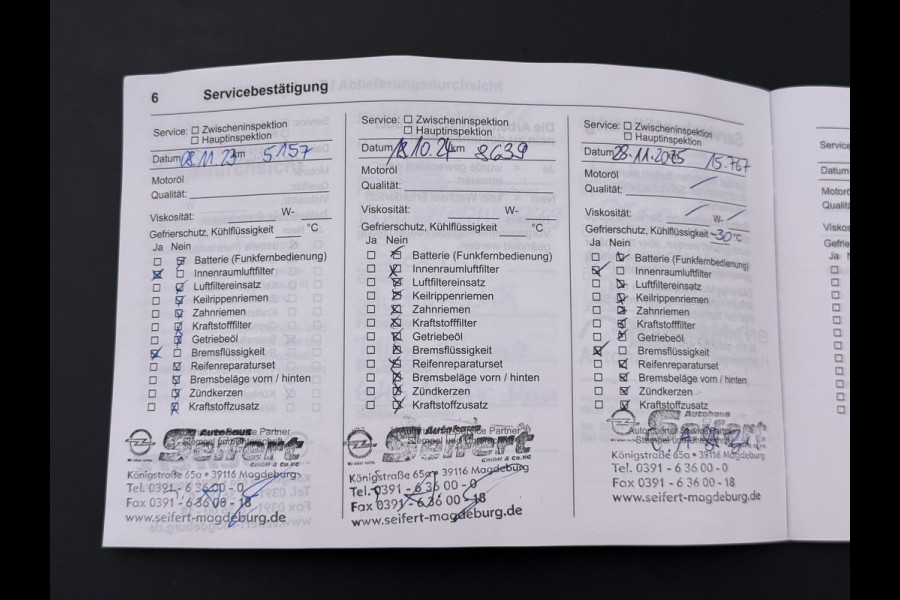 6 Servicebestätigung
Service: Zwischeninspektion
Hauptinspektion
Datum 08.11.23 km 5157
Motoröl
Qualität:
Viskosität: W-
Gefrierschutz, Kühlflüssigkeit °C
Ja Nein
Batterie (Funkfernbedienung)
Innenraumluftfilter
Luftfiltereinsatz
Keilrippenriemen
Zahnriemen
Kraftstofffilter
Getriebeöl
Bremsflüssigkeit
Reifenreparaturset
Bremsbeläge vorn / hinten
Zündkerzen
Kraftstoffzusatz
Autohaus
Seifert
GmbH & Co.KG
Königstraße 65a • 39116 Magdeburg
Tel. 0391 - 6 36 00 - 0
Fax 0391 - 6 36 00 - 18
www.seifert-magdeburg.de
Service: Zwischeninspektion
Hauptinspektion
Datum 18.10.24 km 8639
Motoröl
Qualität:
Viskosität: W-
Gefrierschutz, Kühlflüssigkeit °C
Ja Nein
Batterie (Funkfernbedienung)
Innenraumluftfilter
Luftfiltereinsatz
Keilrippenriemen
Zahnriemen
Kraftstofffilter
Getriebeöl
Bremsflüssigkeit
Reifenreparaturset
Bremsbeläge vorn / hinten
Zündkerzen
Kraftstoffzusatz
Autohaus Partner
Seifert
GmbH & Co.KG
Königstraße 65a • 39116 Magdeburg
Tel. 0391 - 6 36 00 - 0
Fax 0391 - 6 36 00 - 18
www.seifert-magdeburg.de
Service: Zwischeninspektion
Hauptinspektion
Datum 28.11.2025 15.767
Motoröl
Qualität:
Viskosität: W-
Gefrierschutz, Kühlflüssigkeit -30 °C
Ja Nein
Batterie (Funkfernbedienung)
Innenraumluftfilter
Luftfiltereinsatz
Keilrippenriemen
Zahnriemen
Kraftstofffilter
Getriebeöl
Bremsflüssigkeit
Reifenreparaturset
Bremsbeläge vorn / hinten
Zündkerzen
Kraftstoffzusatz
Autohaus
Seifert
Königstraße 65a • 39116 Magdeburg
Tel. 0391 - 6 36 00 - 0
Fax 0391 - 6 36 00 - 18
www.seifert-magdeburg.de
Service
Datum